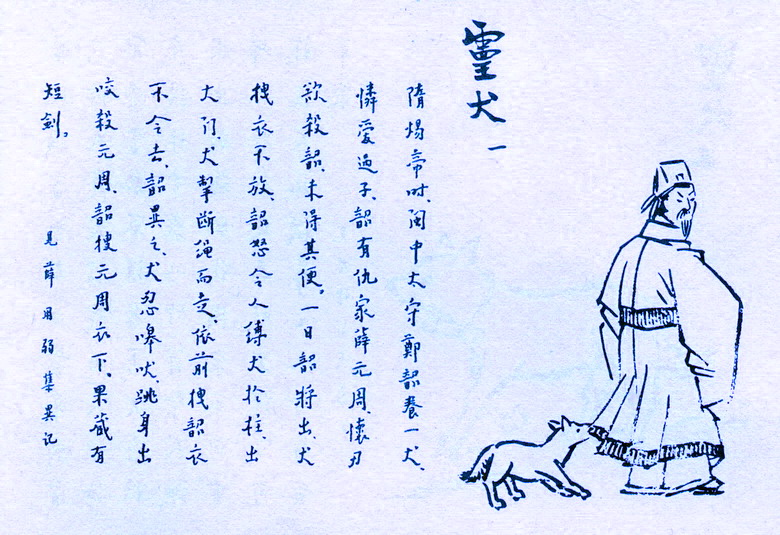 靈犬 一
隋煬帝时、闽中太守鄭韶養一犬、
憐愛過子、韶有仇家薛元周、懷刃
欲殺韶、未得其便。一日韶將出、犬
拽衣不放、韶怒令人缚犬於柱、出
大门、犬掣断绳而走、依前拽韶衣
不令去、韶異之、犬忽嗥吠、跳身出
咬殺元周、韶搜元周衣下、果蔵有
短劍。
見薛用弱集異记